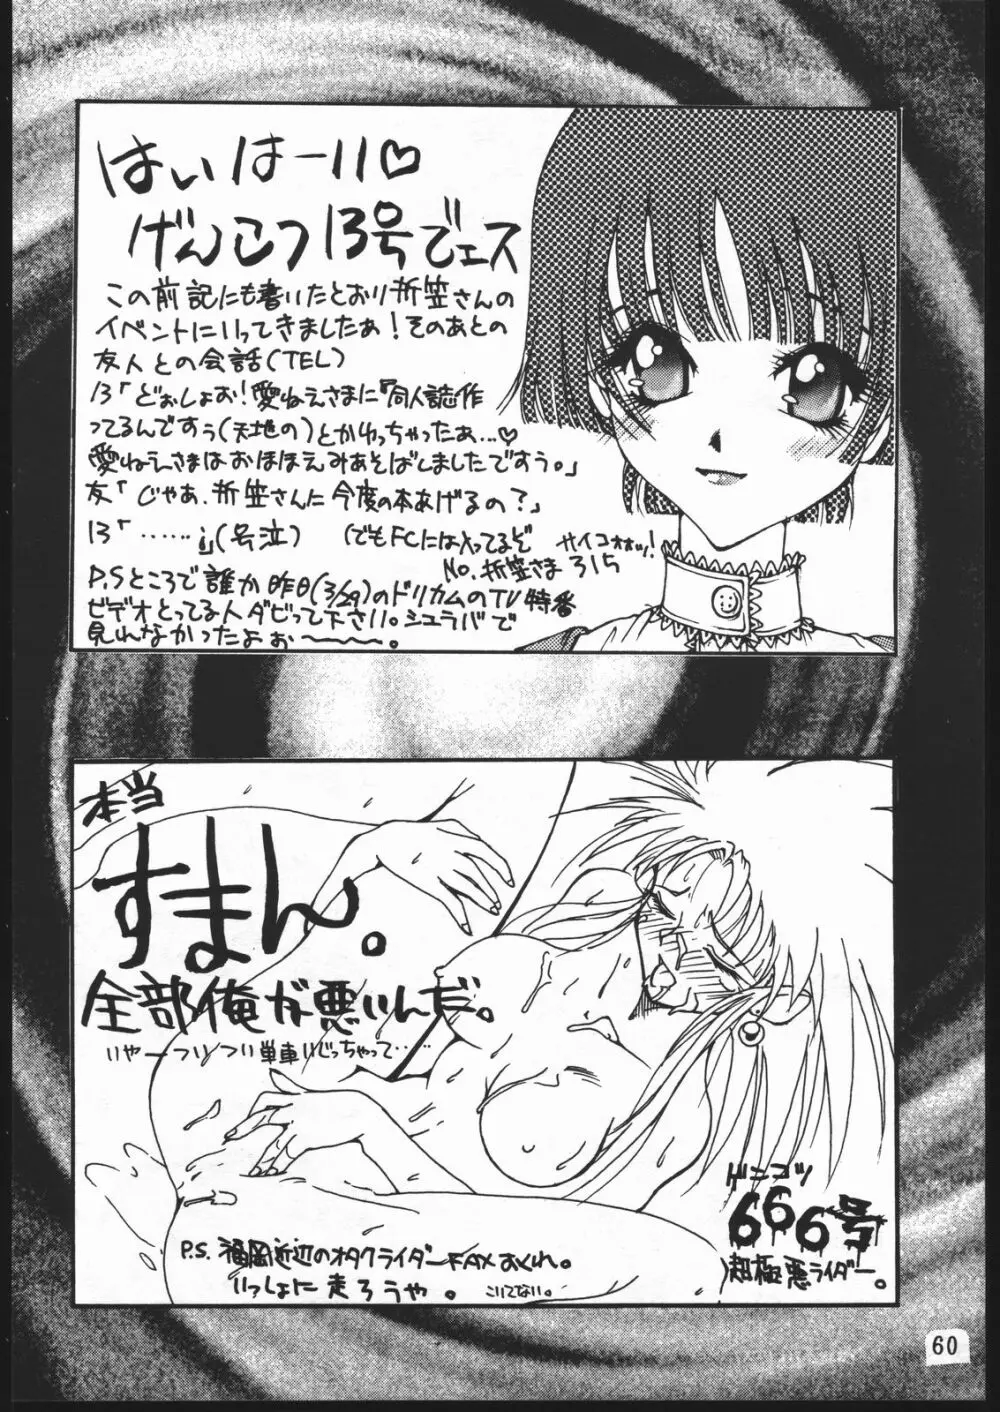 はいはーい♡
げんこつ13号でェス
この前記にも書いたとおり折笠さんの
イベントにいってきましたぁ!そのあとの
友人との会話(TEL)
13「どぉしょぉ!愛ねえさまに『同人誌作
ってるんですぅ(天地の)とかゆっちゃったぁ…♡
愛ねえさまはおほほえみあそばしましたですぅ。」
友「じゃあ、折笠さんに今度の本あげるの?」
13「……i」(号泣)
(でもFCには入ってるぞ
サイコオオッ!
No.折笠さま315
P.Sところで誰か昨日(3/29)のドリカムのTV特番
ビデオとってる人ダビって下さい。シュラバで
見れなかったよぉ〜。
本当
すまん。
全部俺が悪いんだ。
いやーついつい単車いじっちゃって……
ゲンコツ
666号
超極悪ライダー。
P.S. 福岡近辺のオタクライダーFAXおくれ。
いっしょに走ろうや。
こいてない。
60